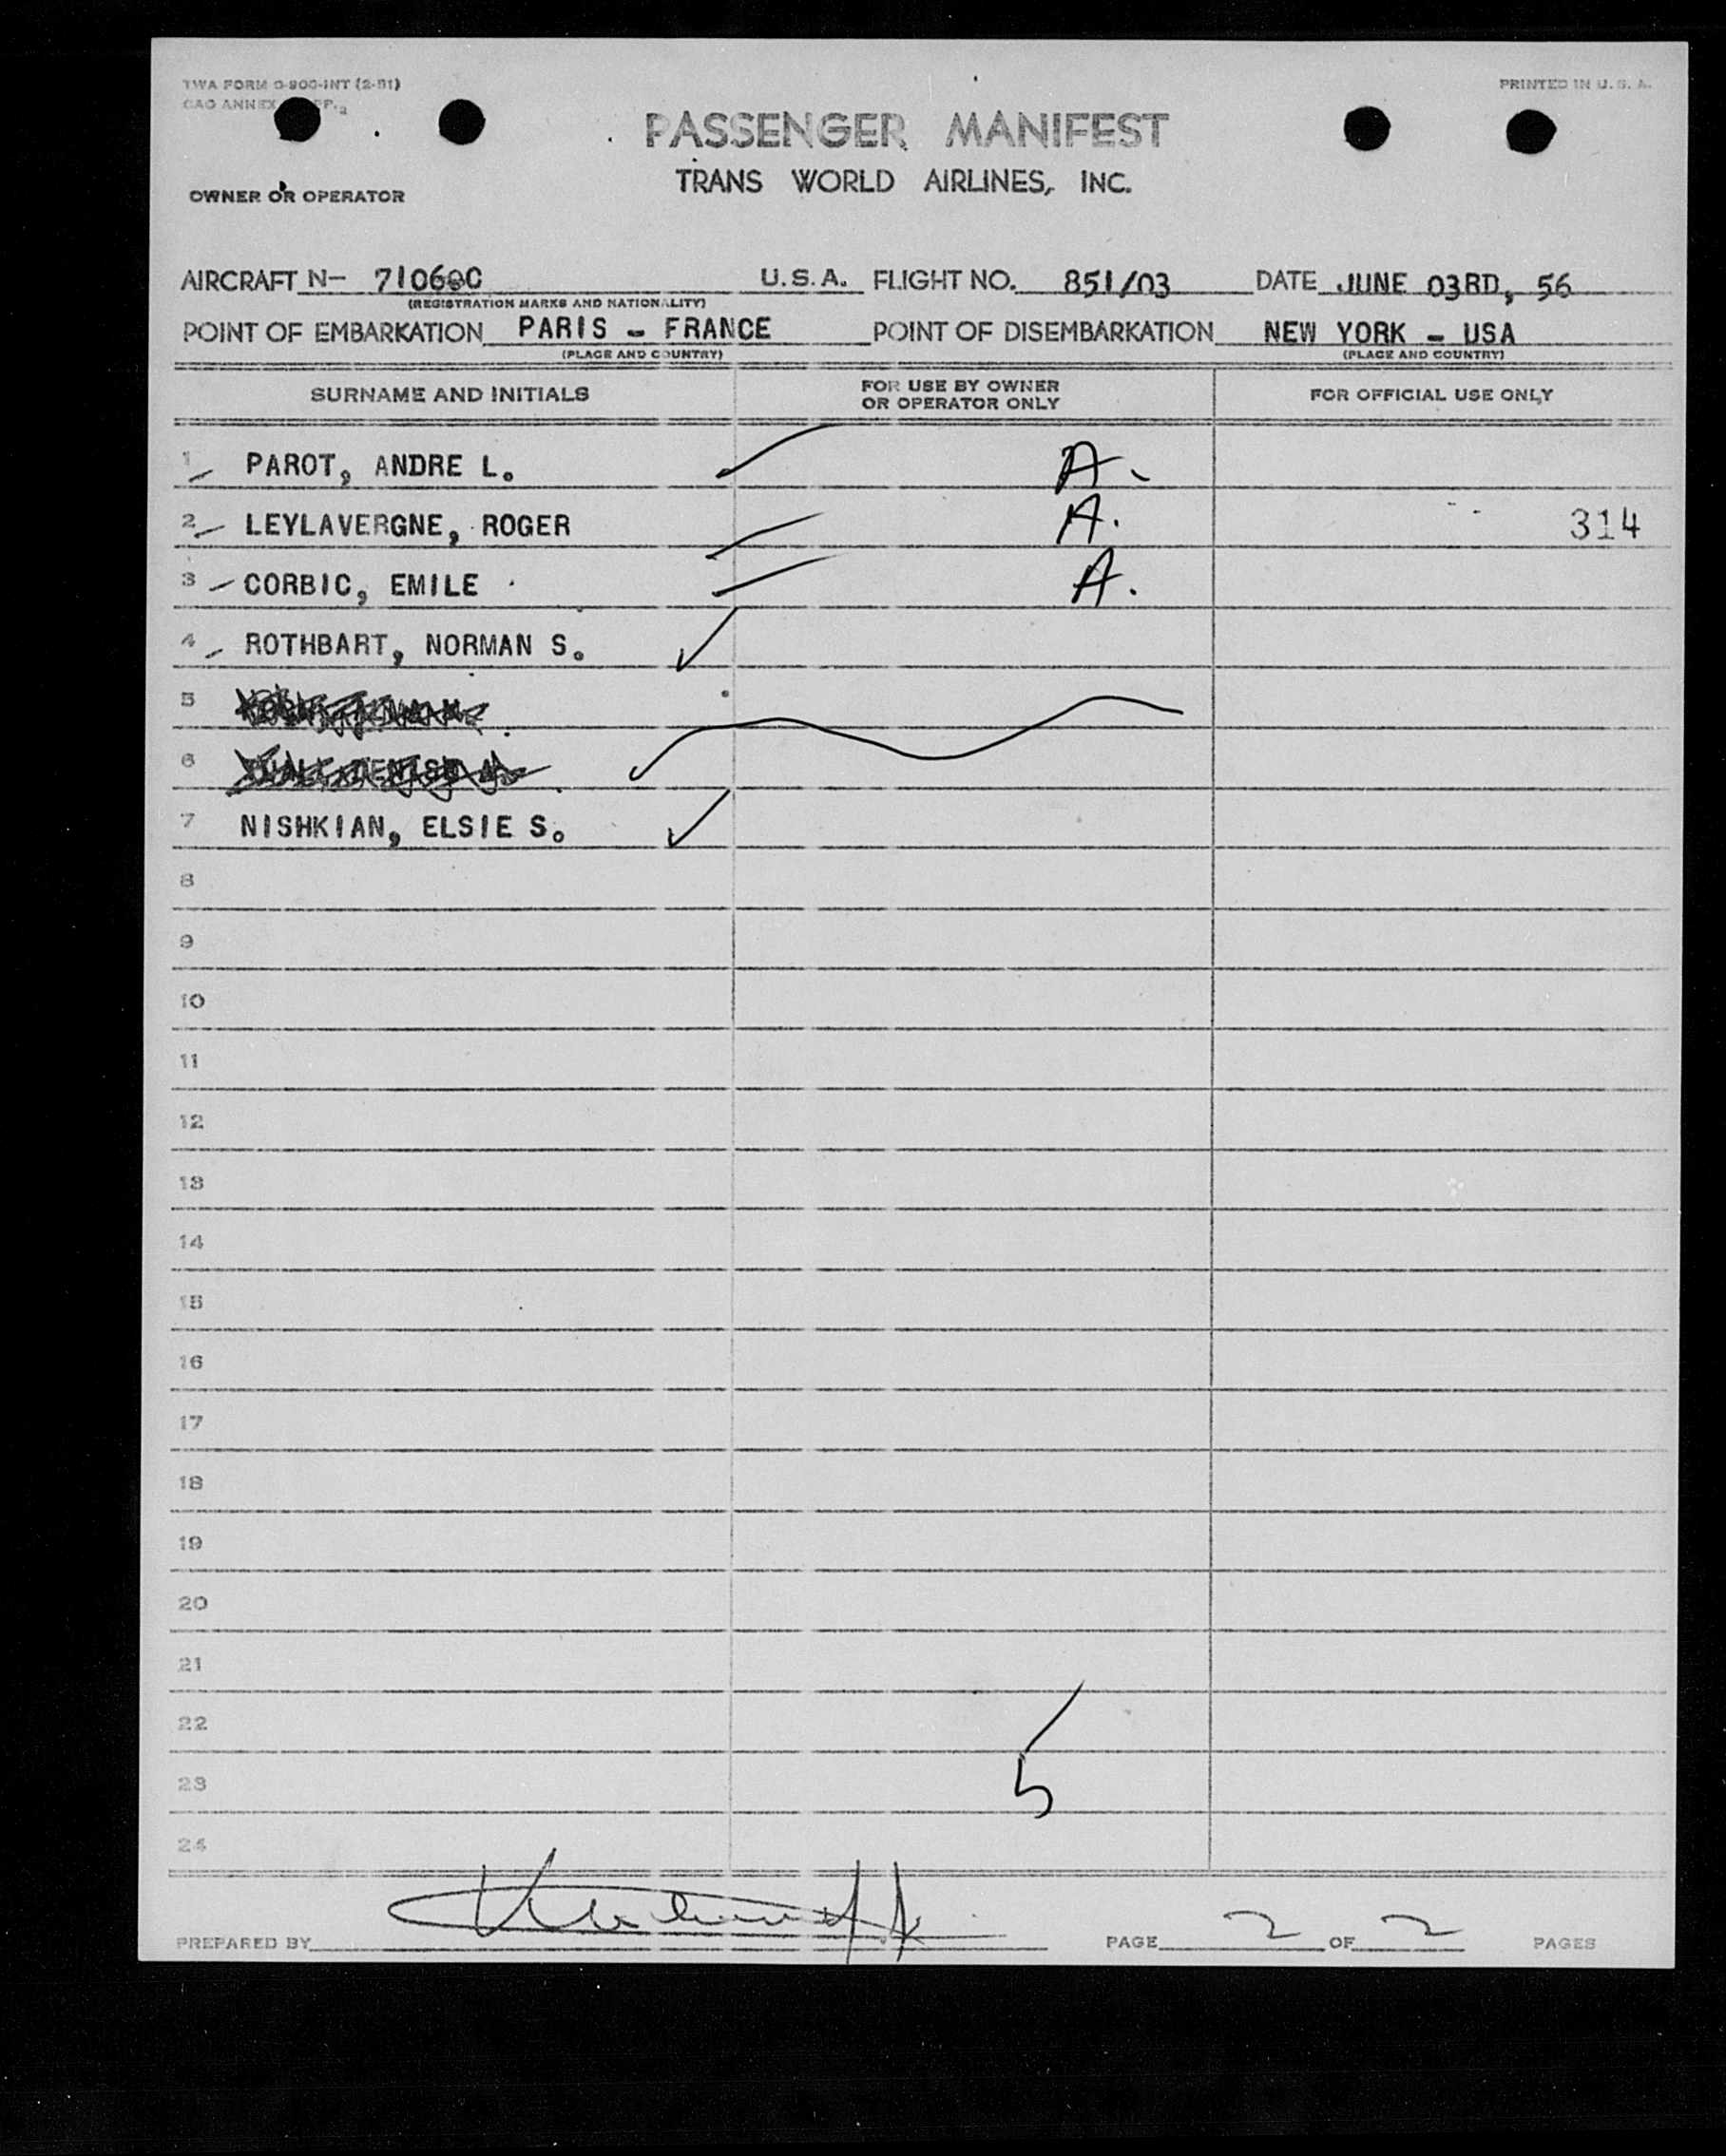 TWA FORM O-900-INT (2-51)
PRINTED IN U. S. A.
PASSENGER MANIFEST
TRANS WORLD AIRLINES, INC.
OWNER OR OPERATOR
AIRCRAFT N- U.S.A. FLIGHT NO. 851/03 DATE JUNE 03RD, 56
(REGISTRATION MARKS AND NATIONALITY)
POINT OF EMBARKATION PARIS - FRANCE POINT OF DISEMBARKATION NEW YORK - USA
(PLACE AND COUNTRY) (PLACE AND COUNTRY)
SURNAME AND INITIALS FOR USE BY OWNER OR OPERATOR ONLY FOR OFFICIAL USE ONLY
1 PAROT, ANDRE L. A.
2 LEYLAVERGNE, ROGER A. 314
3 CORBIC, EMILE A.
4 ROTHBART, NORMAN S.
5
6
7 NISHKIAN, ELSIE S.
8
9
10
11
12
13
14
15
16
17
18
19
20
21
22
23 5
24
PREPARED BY PAGE 2 OF 2 PAGES